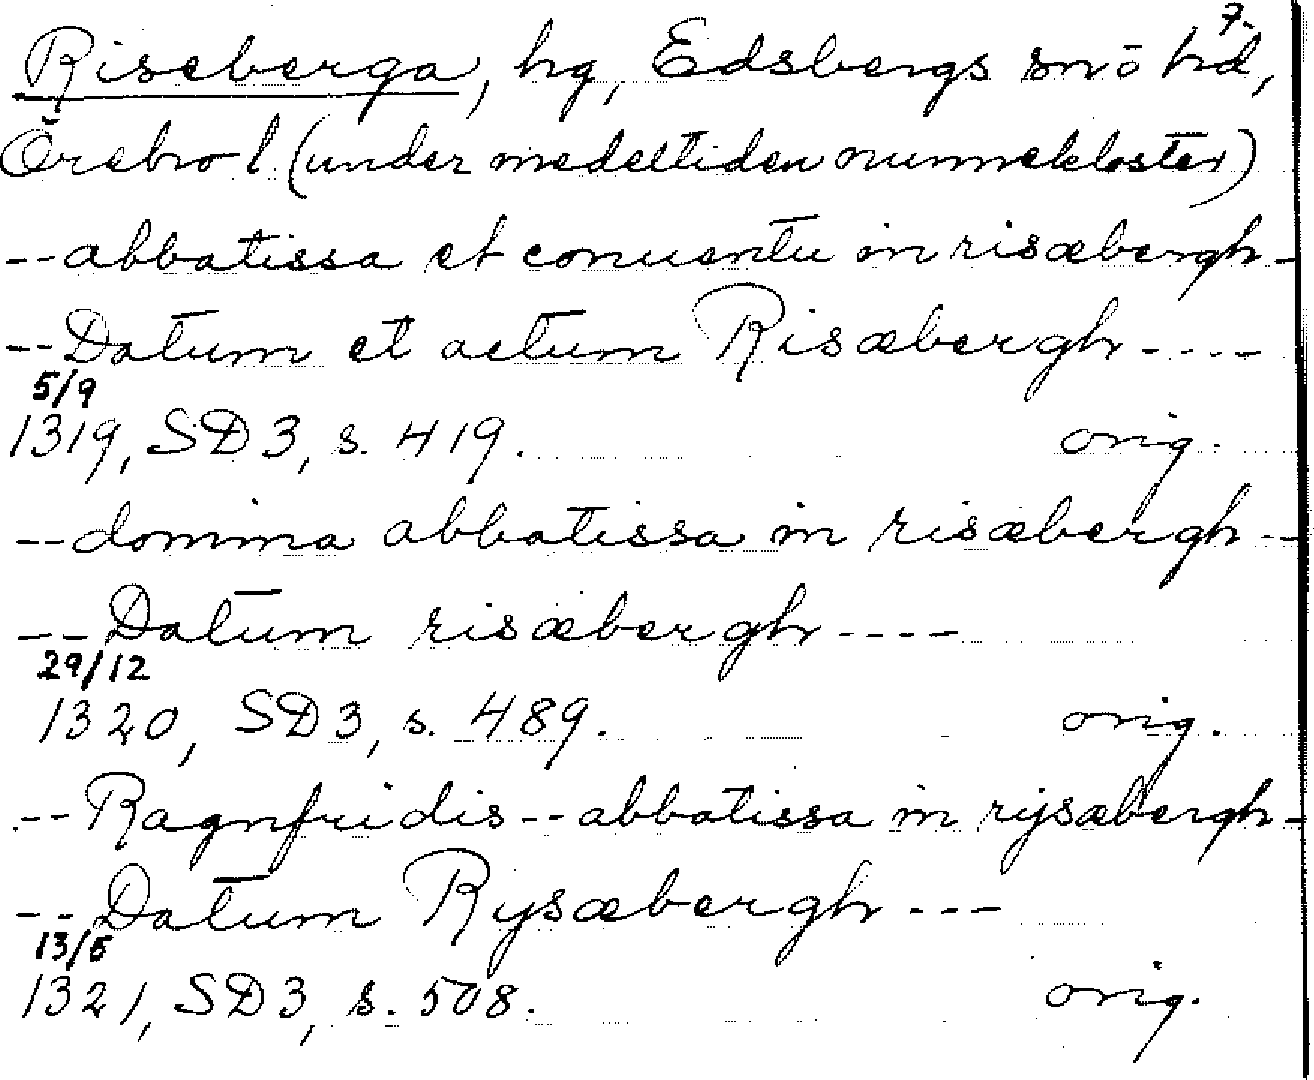 7.
Riseberga, hg, Edsbergs sn ō hd,
Örebro l (under medeltiden nunnekloster)
-- abbatissa et conuentu in risæbergh -
-- Datum et actum Risæbergh ----
5/9
1319, SD 3, s. 419. orig.
-- domina abbatissa in risæbergh --
-- Datum risæbergh ----
29/12
1320, SD 3, s. 489. orig.
-- Ragnfridis -- abbatissa in rysæbergh -
-- Datum Rysæbergh ---
13/5
1321, SD 3, s. 508. orig.